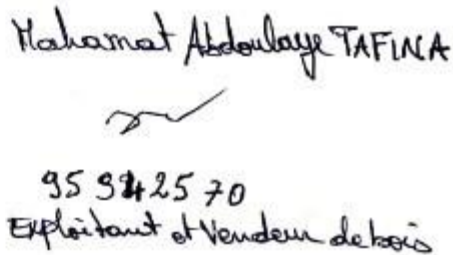 Mahamat Abdoulaye TAFINA
95 94 25 70
Exploitant et Vendeur de bois